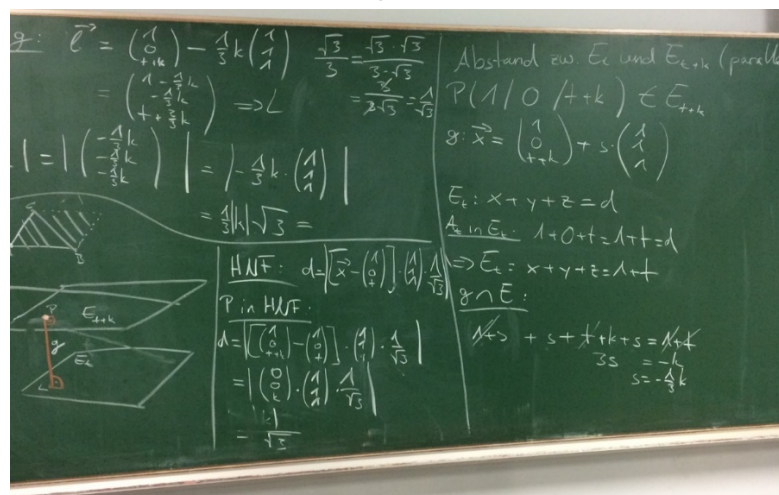 g: l⃗ = (1 0 t+k) - 1/3 k (1 1 1)
= (1-1/3k -1/3k t+2/3k) => L
√3/3 = √3·√3/3·√3
= 3/3√3 = 1/√3
| = |(-1/3k -1/3k -1/3k)| = |-1/3k·(1 1 1)|
= 1/3|k|√3 =
B
P
E_t+k
g
E_t
L
HNF: d=|[x⃗-(1 0 t)]·(1 1 1)·1/√3|
P in HNF:
d=|[(1 0 t+k)-(1 0 t)]·(1 1 1)·1/√3|
=|(0 0 k)·(1 1 1)·1/√3|
√3
Abstand zw. E_t und E_t+k (parall
P(1/0/t+k) ∈ E_t+k
g: x⃗ = (1 0 t+k) + s·(1 1 1)
E_t: x+y+z=d
A_t in E_t: 1+0+t=1+t=d
=> E_t: x+y+z=1+t
g∩E:
1+s + s+t+k+s=1+t
3s = -k
s=-1/3k